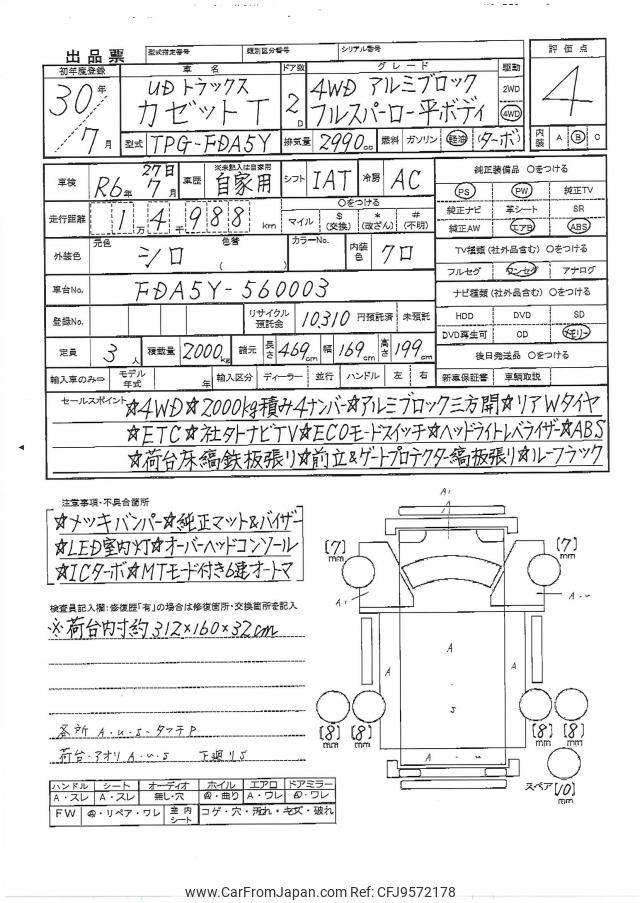 出品票 型式指定番号 類別区分番号 シリアル番号
初年度登録 車名 ドア数 グレード 駆動 評価点
30年 UDトラックス カゼットT 2D 4WD アルミブロック 2WD 4
7月 フルスーパーロー平ボディ 4WD
型式 TPG-FDA5Y 排気量 2990cc 燃料 ガソリン 軽油 (ターボ) 内装 A B C
車検 R6年 7月 27日 車歴 ※未記入は自家用 自家用 シフト IAT 冷房 AC 純正装備品 ○をつける
PS PW 純正TV
走行距離 1万4千988km ○をつける マイル $(交換) *(改ざん) #(不明) 純正ナビ 革シート SR
純正AW エアB ABS
外装色 元色 シロ 色替 ( ) カラーNo. 内装色 クロ TV種類(社外品含む) ○をつける
フルセグ ワンセグ アナログ
車台No. FDA5Y-560003 ナビ種類(社外品含む) ○をつける
登録No. リサイクル預託金 10,310 円預託済 未預託 HDD DVD SD
DVD再生可 CD メモリー
定員 3人 積載量 2000kg 諸元 長さ 469cm 幅 169cm 高さ 199cm 後日発送品 ○をつける
輸入車のみ⇨ モデル年式 年 輸入区分 ディーラー 並行 ハンドル 左 右 新車保証書 車輌取説
セールスポイント ☆4WD☆2000kg積み4ナンバー☆アルミブロック三方開☆リアWタイヤ
☆ETC☆社外ナビTV☆ECOモードスイッチ☆ヘッドライトレベライザー☆ABS
☆荷台床縞鉄板張り☆前立&ゲートプロテクター縞板張り☆ルーフラック
注意事項・不具合箇所
☆メッキバンパー☆純正マット&バイザー
☆LED室内灯☆オーバーヘッドコンソール
☆ICターボ☆MTモード付き6速オートマ
検査員記入欄:修復歴「有」の場合は修復箇所・交換箇所を記入
※荷台内寸約312×160×32cm
各所 A・u・S・タッチP
荷台・アオリ A・u・S 下廻りS
ハンドル シート オーディオ ホイル エアロ ドアミラー
A・スレ A・スレ 無し・穴 ・曲り A・ワレ ・ワレ
FW ・リペア・ワレ 室内シート コゲ・穴・汚れ・キズ・破れ
A1
[7]mm [7]mm
A1 A・u
A A
A
S
[8]mm [8]mm [8]mm [8]mm
A・u
スペア [10]mm
www.CarFromJapan.com Ref: CFJ9572178